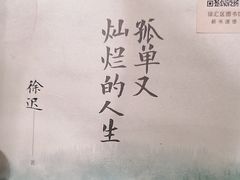 孤单又
灿烂的人生
徐迟
著